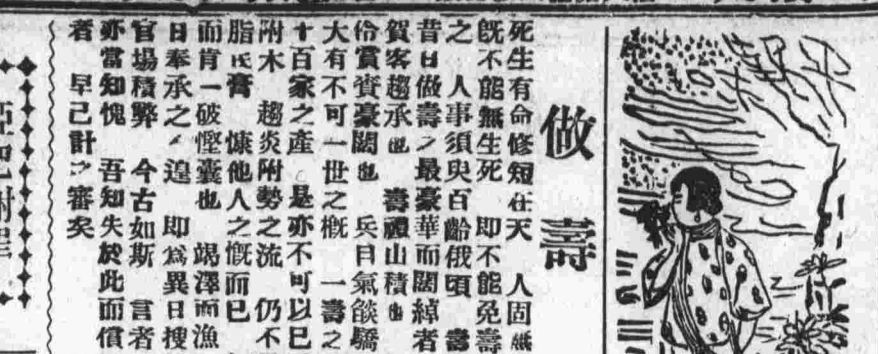 做壽
死生有命修短在天　人固無
既不能無生死　即不能免壽
之　人事須臾百齡俄頃　壽
昔日做壽之最豪華而闊綽者
賀客趨承也　壽禮山積也
伶賞賚豪闊也　兵目氣燄驕
大有不可一世之概　一壽之
十百家之產　是亦不可以已
附木　趨炎附勢之流　仍不
脂民膏　慷他人之慨而已
而肯一破慳囊也　竭澤而漁
日奉承之　遑　即爲異日搜
官場積弊　今古如斯　言者
亦當知愧　吾知失於此而償
者　早己計之審矣